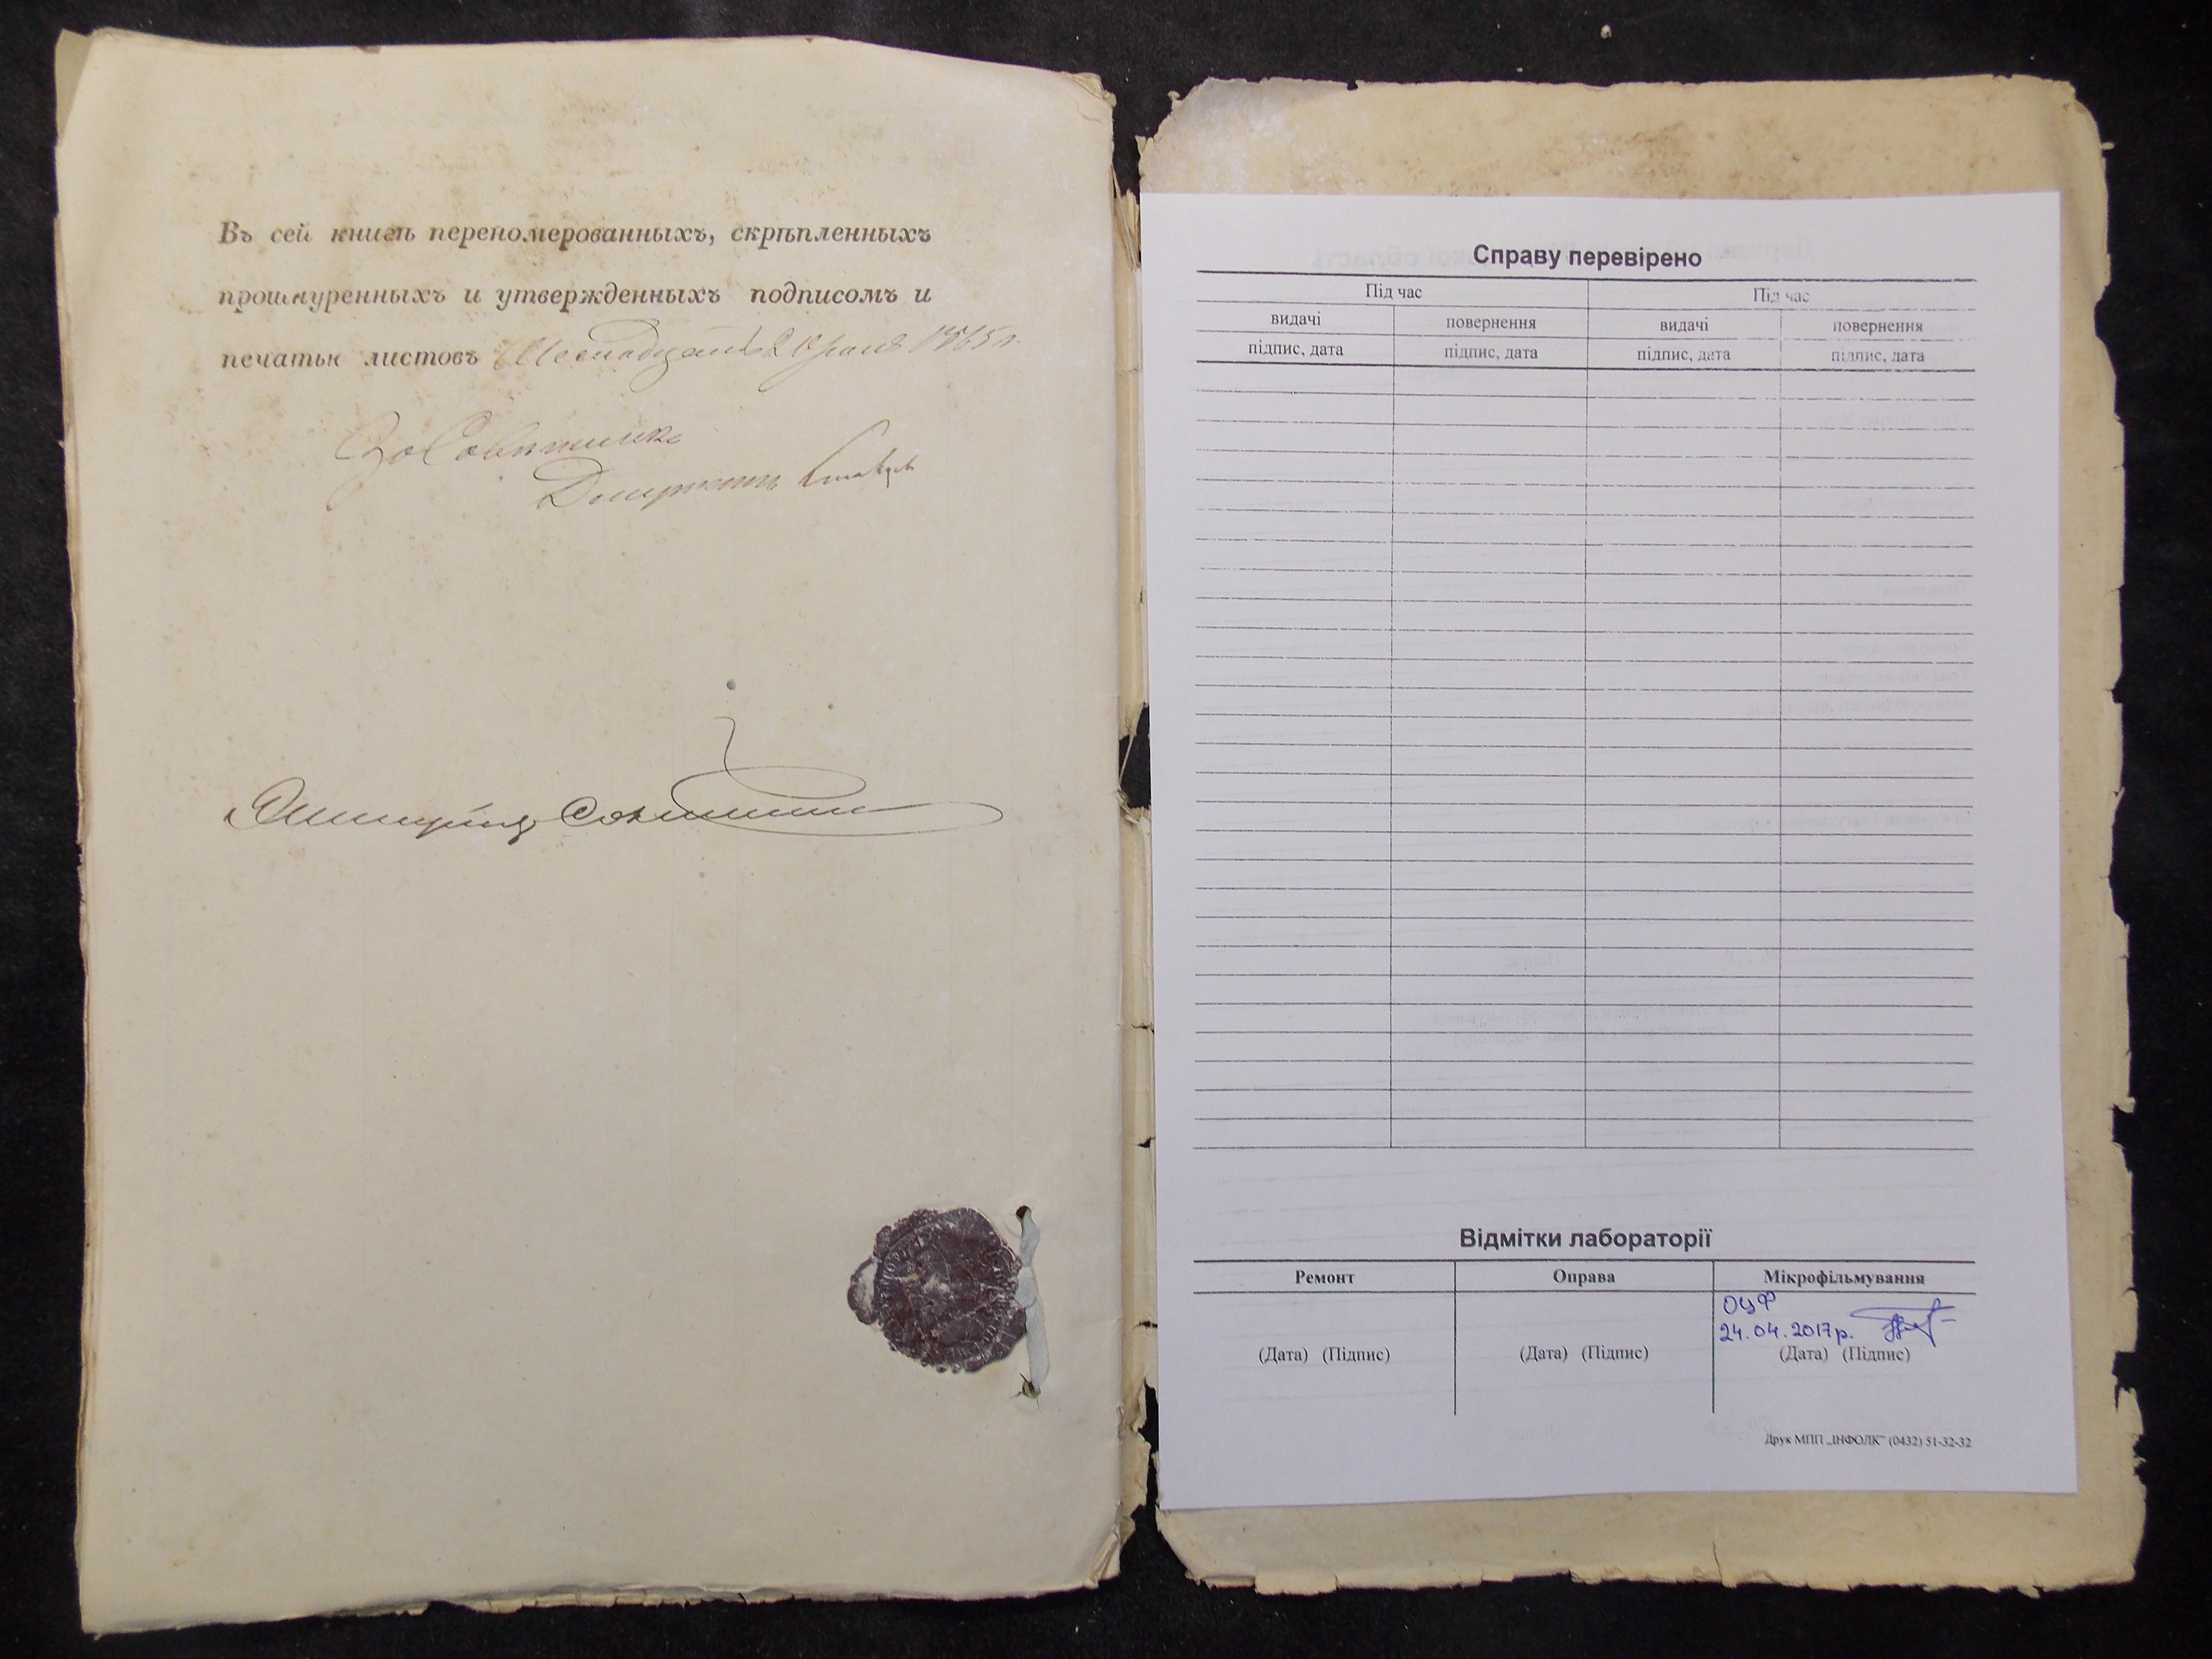 Въ сей книгѣ переномерованныхъ, скрѣпленныхъ
прошнуренныхъ и утвержденныхъ подписомъ и
печатьн листовъ
За Совѣтника
Справу перевірено
Під час
Під час
видачі
повернення
видачі
повернення
підпис, дата
підпис, дата
підпис, дата
підпис, дата
Відмітки лабораторії
Ремонт
Оправа
Мікрофільмування
ОЦФ
24.04.2017р.
(Дата) (Підпис)
(Дата) (Підпис)
(Дата) (Підпис)
Друк МПП „ІНФОЛК” (0432) 51-32-32